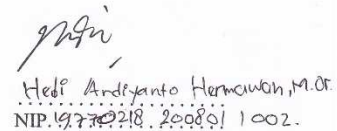 Hedi Ardiyanto Hermawan, M.Or.
NIP. 19770218 200801 1 002.